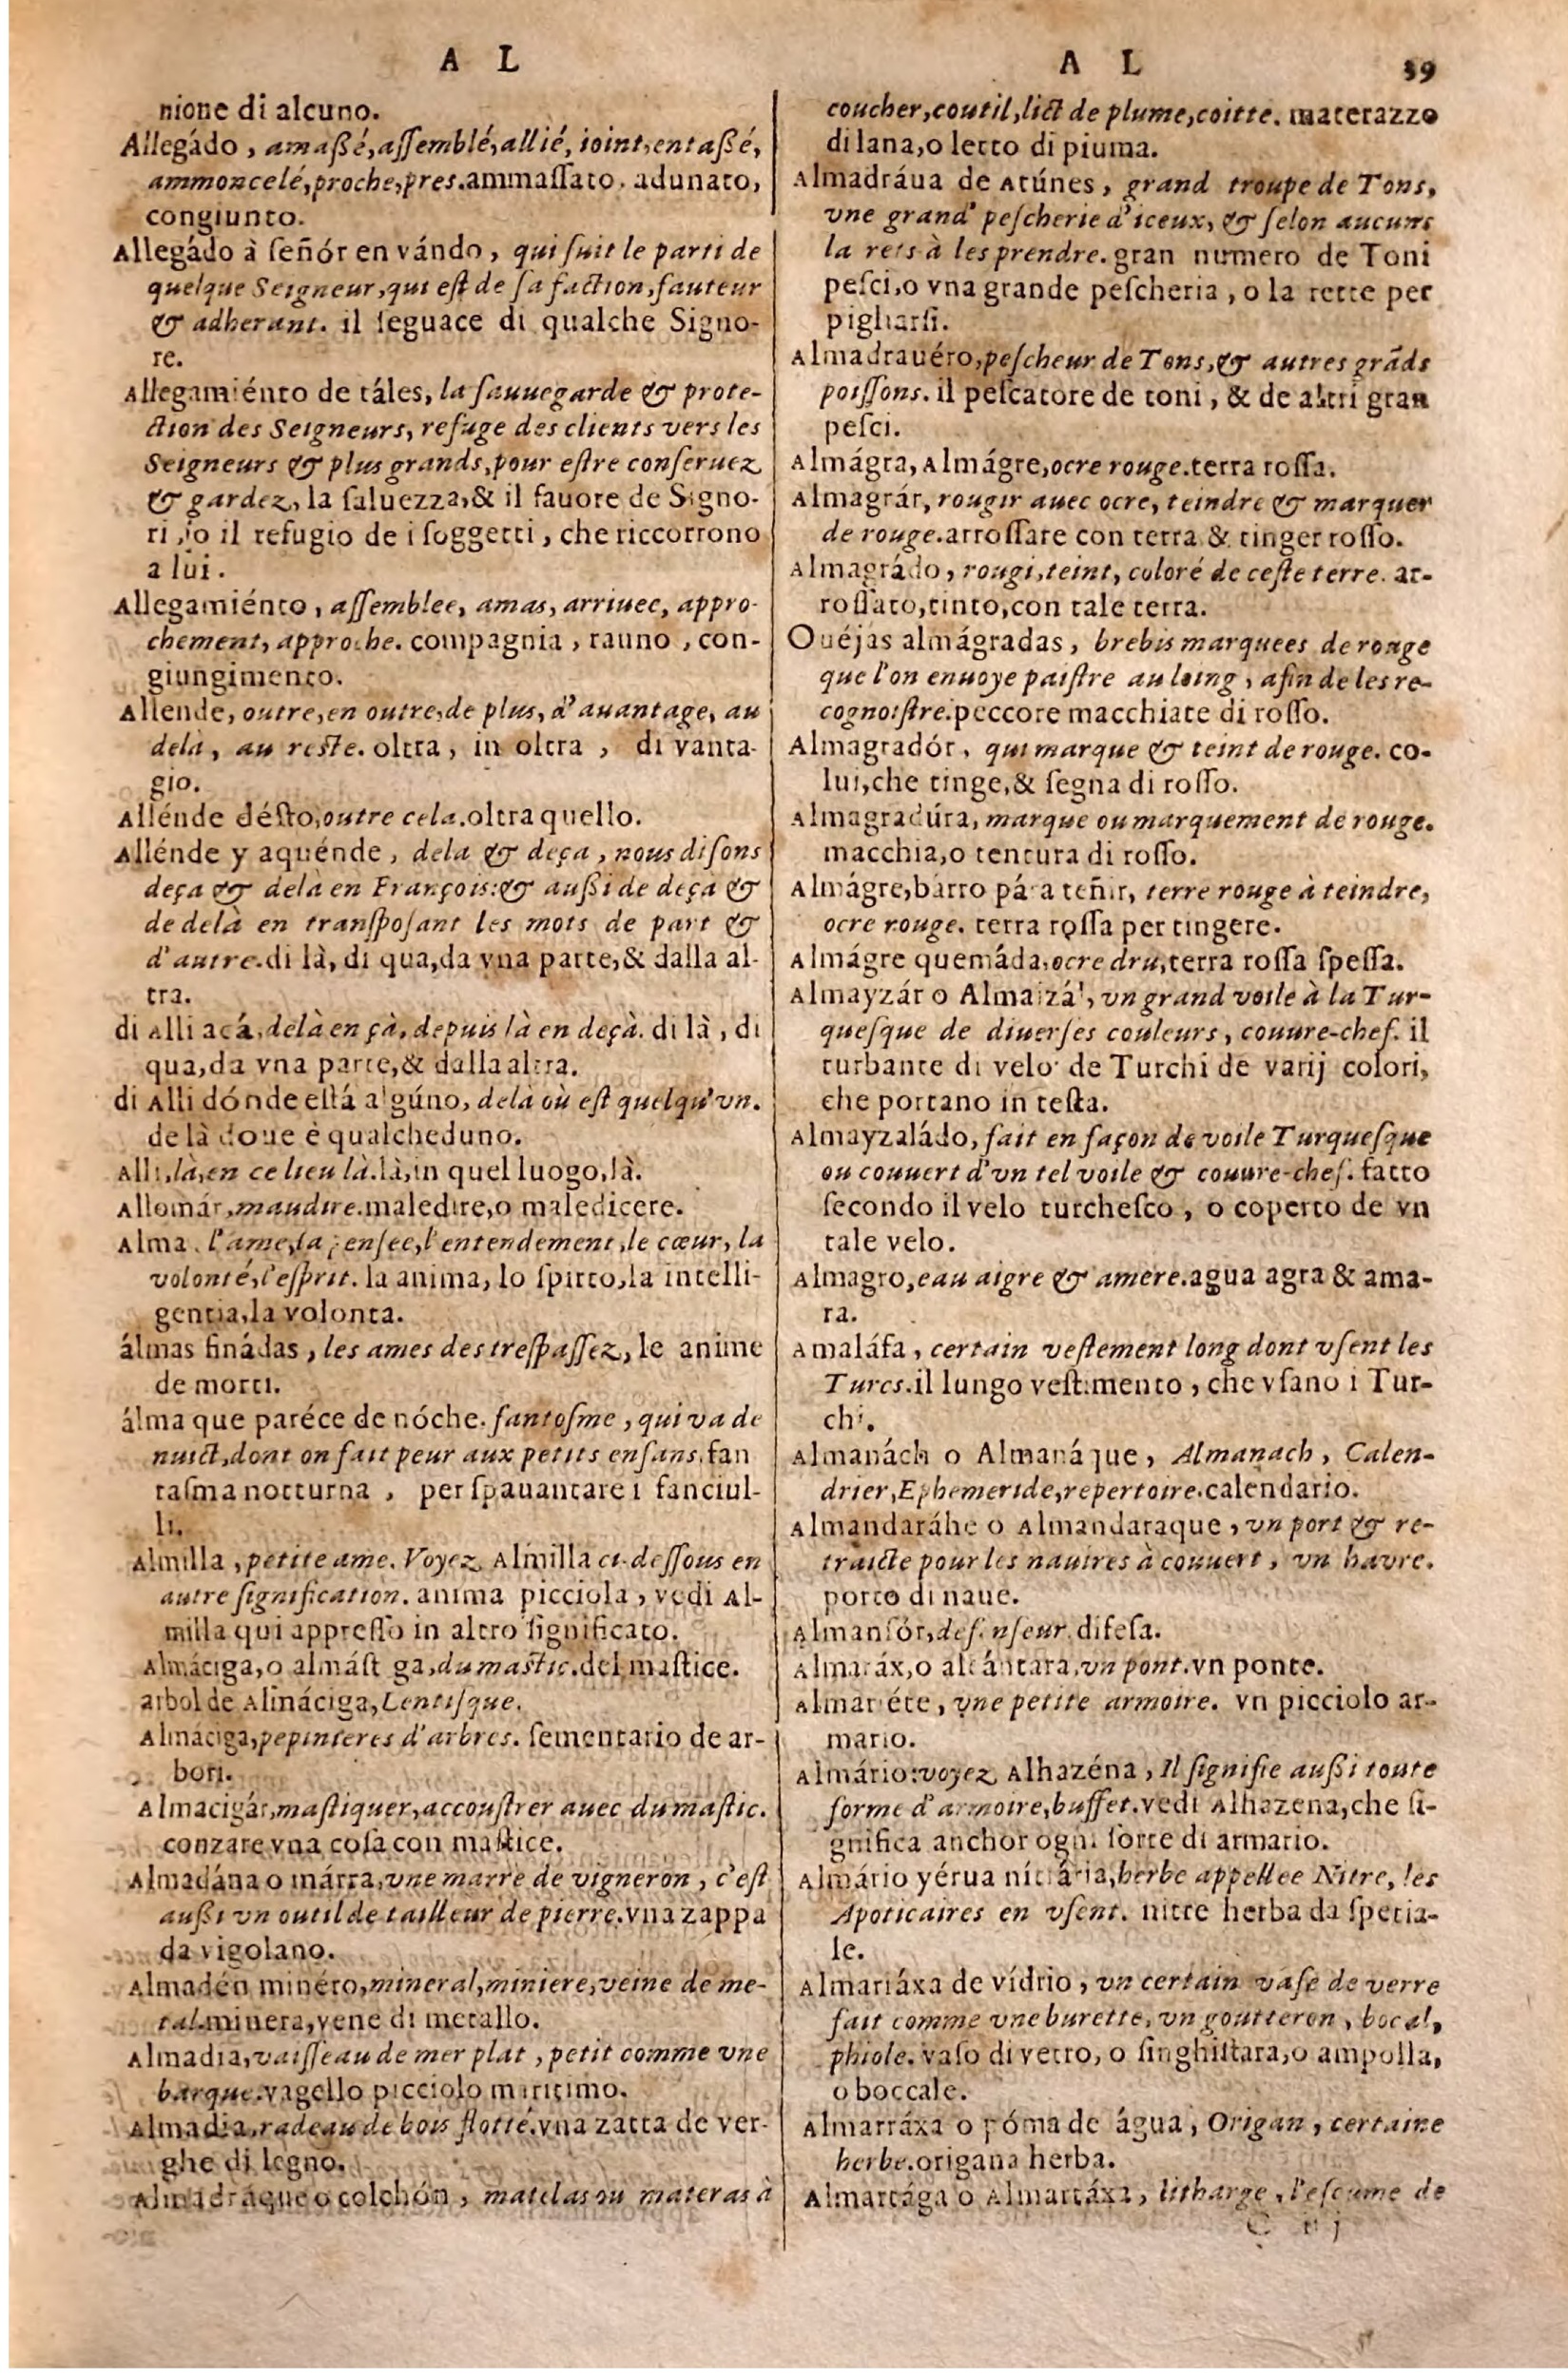 A L
nione di alcuno.
Allegádo, amaßé, aſſemblé, allié, ioint, entaßé,
ammoncelé, proche, pres. ammaſſato, adunato,
congiunto.
Allegádo à ſeñór en vándo, qui ſuit le parti de
quelque Seigneur, qui eſt de ſa faction, fauteur
& adherant. il ſeguace di qualche Signo-
re.
Allegamiénto de táles, la ſauuegarde & prote-
ction des Seigneurs, refuge des clients vers les
Seigneurs & plus grands, pour eſtre conſeruez
& gardez, la ſaluezza, & il fauore de Signo-
ri, o il refugio de i ſoggetti, che riccorrono
a lui.
Allegamiénto, aſſemblee, amas, arriuee, appro-
chement, approche. compagnia, rauno, con-
giungimento.
Allende, outre, en outre, de plus, d'auantage, au
delà, au reſte. oltra, in oltra, di vanta-
gio.
Allénde déſto, outre cela. oltra quello.
Allénde y aquénde, dela & deça, nous diſons
deça & delà en François: & außi de deça &
de delà en tranſpoſant les mots de part &
d'autre. di là, di qua, da vna parte, & dalla al-
tra.
di Alli acá, delà en çà, depuis là en deçà. di là, di
qua, da vna parte, & dalla altra.
di Alli dónde eſtá algúno, delà où eſt quelqu'vn.
de là doue è qualcheduno.
Alli, là, en ce lieu là. là, in quel luogo, là.
Allomár, maudire. maledire, o maledicere.
Alma, l'ame, la penſee, l'entendement, le cœur, la
volonté, l'eſprit. la anima, lo ſpirto, la intelli-
gentia, la volonta.
álmas finádas, les ames des treſpaſſez, le anime
de morti.
álma que paréce de nóche. fantoſme, qui va de
nuict, dont on fait peur aux petits enfans. fan
taſma notturna, per ſpauantare i fanciul-
li.
Almilla, petite ame. Voyez Almilla ci-deſſous en
autre ſignification. anima picciola, vedi Al-
milla qui appreſſo in altro ſignificato.
Almáciga, o almáſtiga, du maſtic. del maſtice.
arbol de Almáciga, Lentiſque.
Almáciga, pepinieres d'arbres. ſementario de ar-
bori.
Almacigár, maſtiquer, accouſtrer auec du maſtic.
conzare vna coſa con maſtice.
Almadána o márra, vne marre de vigneron, c'eſt
außi vn outil de tailleur de pierre. vna zappa
da vigolano.
Almadén minéro, mineral, miniere, veine de me-
tal. minera, vene di metallo.
Almadia, vaiſſeau de mer plat, petit comme vne
barque. vagello picciolo maritimo.
Almadia, radeau de bois flotté. vna zatta de ver-
ghe di legno.
Almadráque o colchón, matelas ou materas à
A L 39
coucher, coutil, lict de plume, coitte. materazzo
di lana, o letto di piuma.
Almadráua de Atúnes, grand troupe de Tons,
vne grand' peſcherie d'iceux, & ſelon aucuns
la rets à les prendre. gran numero de Toni
peſci, o vna grande peſcheria, o la rette per
pigliarſi.
Almadrauéro, peſcheur de Tons, & autres grãds
poiſſons. il peſcatore de toni, & de altri gran
peſci.
Almágra, Almágre, ocre rouge. terra roſſa.
Almagrár, rougir auec ocre, teindre & marquer
de rouge. arroſſare con terra & tinger roſſo.
Almagrádo, rougi, teint, coloré de ceſte terre. ar-
roſſato, tinto, con tale terra.
Ouéjas almágradas, brebis marquees de rouge
que l'on enuoye paiſtre au loing, afin de les re-
cognoiſtre. peccore macchiate di roſſo.
Almagradór, qui marque & teint de rouge. co-
lui, che tinge, & ſegna di roſſo.
Almagradúra, marque ou marquement de rouge.
macchia, o tentura di roſſo.
Almágre, bárro pára teñir, terre rouge à teindre,
ocre rouge. terra roſſa per tingere.
Almágre quemáda, ocre dru, terra roſſa ſpeſſa.
Almayzár o Almaizál, vn grand voile à la Tur-
queſque de diuerſes couleurs, couure-chef. il
turbante di velo de Turchi de varij colori,
che portano in teſta.
Almayzaládo, fait en façon de voile Turqueſque
ou couuert d'vn tel voile & couure-chef. fatto
ſecondo il velo turcheſco, o coperto de vn
tale velo.
Almagro, eau aigre & amere. agua agra & ama-
ra.
Amaláfa, certain veſtement long dont vſent les
Turcs. il lungo veſtimento, che vſano i Tur-
chi.
Almanách o Almanáque, Almanach, Calen-
drier, Ephemeride, repertoire. calendario.
Almandaráhe o Almandaraque, vn port & re-
traicte pour les nauires à couuert, vn havre.
porto di naue.
Almanſór, defenſeur. difeſa.
Almaráx, o alcántara, vn pont. vn ponte.
Almariéte, vne petite armoire. vn picciolo ar-
mario.
Almário: voyez Alhazéna, Il ſignifie außi toute
forme d'armoire, buffet. vedi Alhazena, che ſi-
gnifica anchor ogni ſorte di armario.
Almário yérua nitrária, herbe appellee Nitre, les
Apoticaires en vſent. nitre herba da ſpetia-
le.
Almariáxa de vídrio, vn certain vaſe de verre
fait comme vne burette, vn goutteron, bocal,
phiole. vaſo di vetro, o ſinghiſtara, o ampolla,
o boccale.
Almarráxa o póma de água, Origan, certaine
herbe. origana herba.
Almartága o Almartáxa, litharge, l'eſcume de
C iij